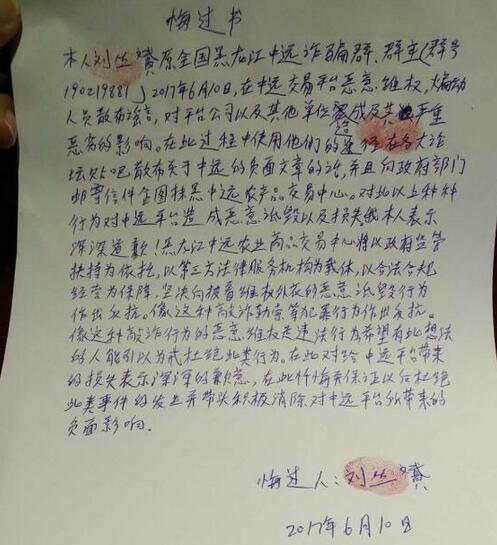 悔过书
本人刘丛赟原全国黑龙江中远诈骗群、群主(群号
190219881)2017年6月10日,在中远交易平台恶意维权,煽动
人员散布谣言,对平台公司以及其他单位造成及其严重
恶劣的影响。在此过程中使用他们的途径在各大论
坛贴吧散布关于中远的负面文章的话,并且向政府部门
邮寄信件全国抹黑中远农产品交易中心。对此以上种种
行为对中远平台造成恶意诋毁以及损失我本人表示
深深道歉,黑龙江中远农业商品交易中心将以政府监管
扶持为依托,以第三方法律服务机构为载体,以合法合规
经营为保障,坚决向披着维权外衣的恶意诋毁行为
作出反抗。像这种敲诈勒索等犯罪行为作出反抗。
像这种敲诈行为的恶意维权走违法行为希望有此想法
的人能引以为戒杜绝此类行为。在此对给中远平台带来
的损失表示深深的歉意,在此忏悔并保证以后杜绝
此类事件的发生并带头积极消除对中远平台所带来的
负面影响。
悔过人:刘丛赟
2017年6月10日